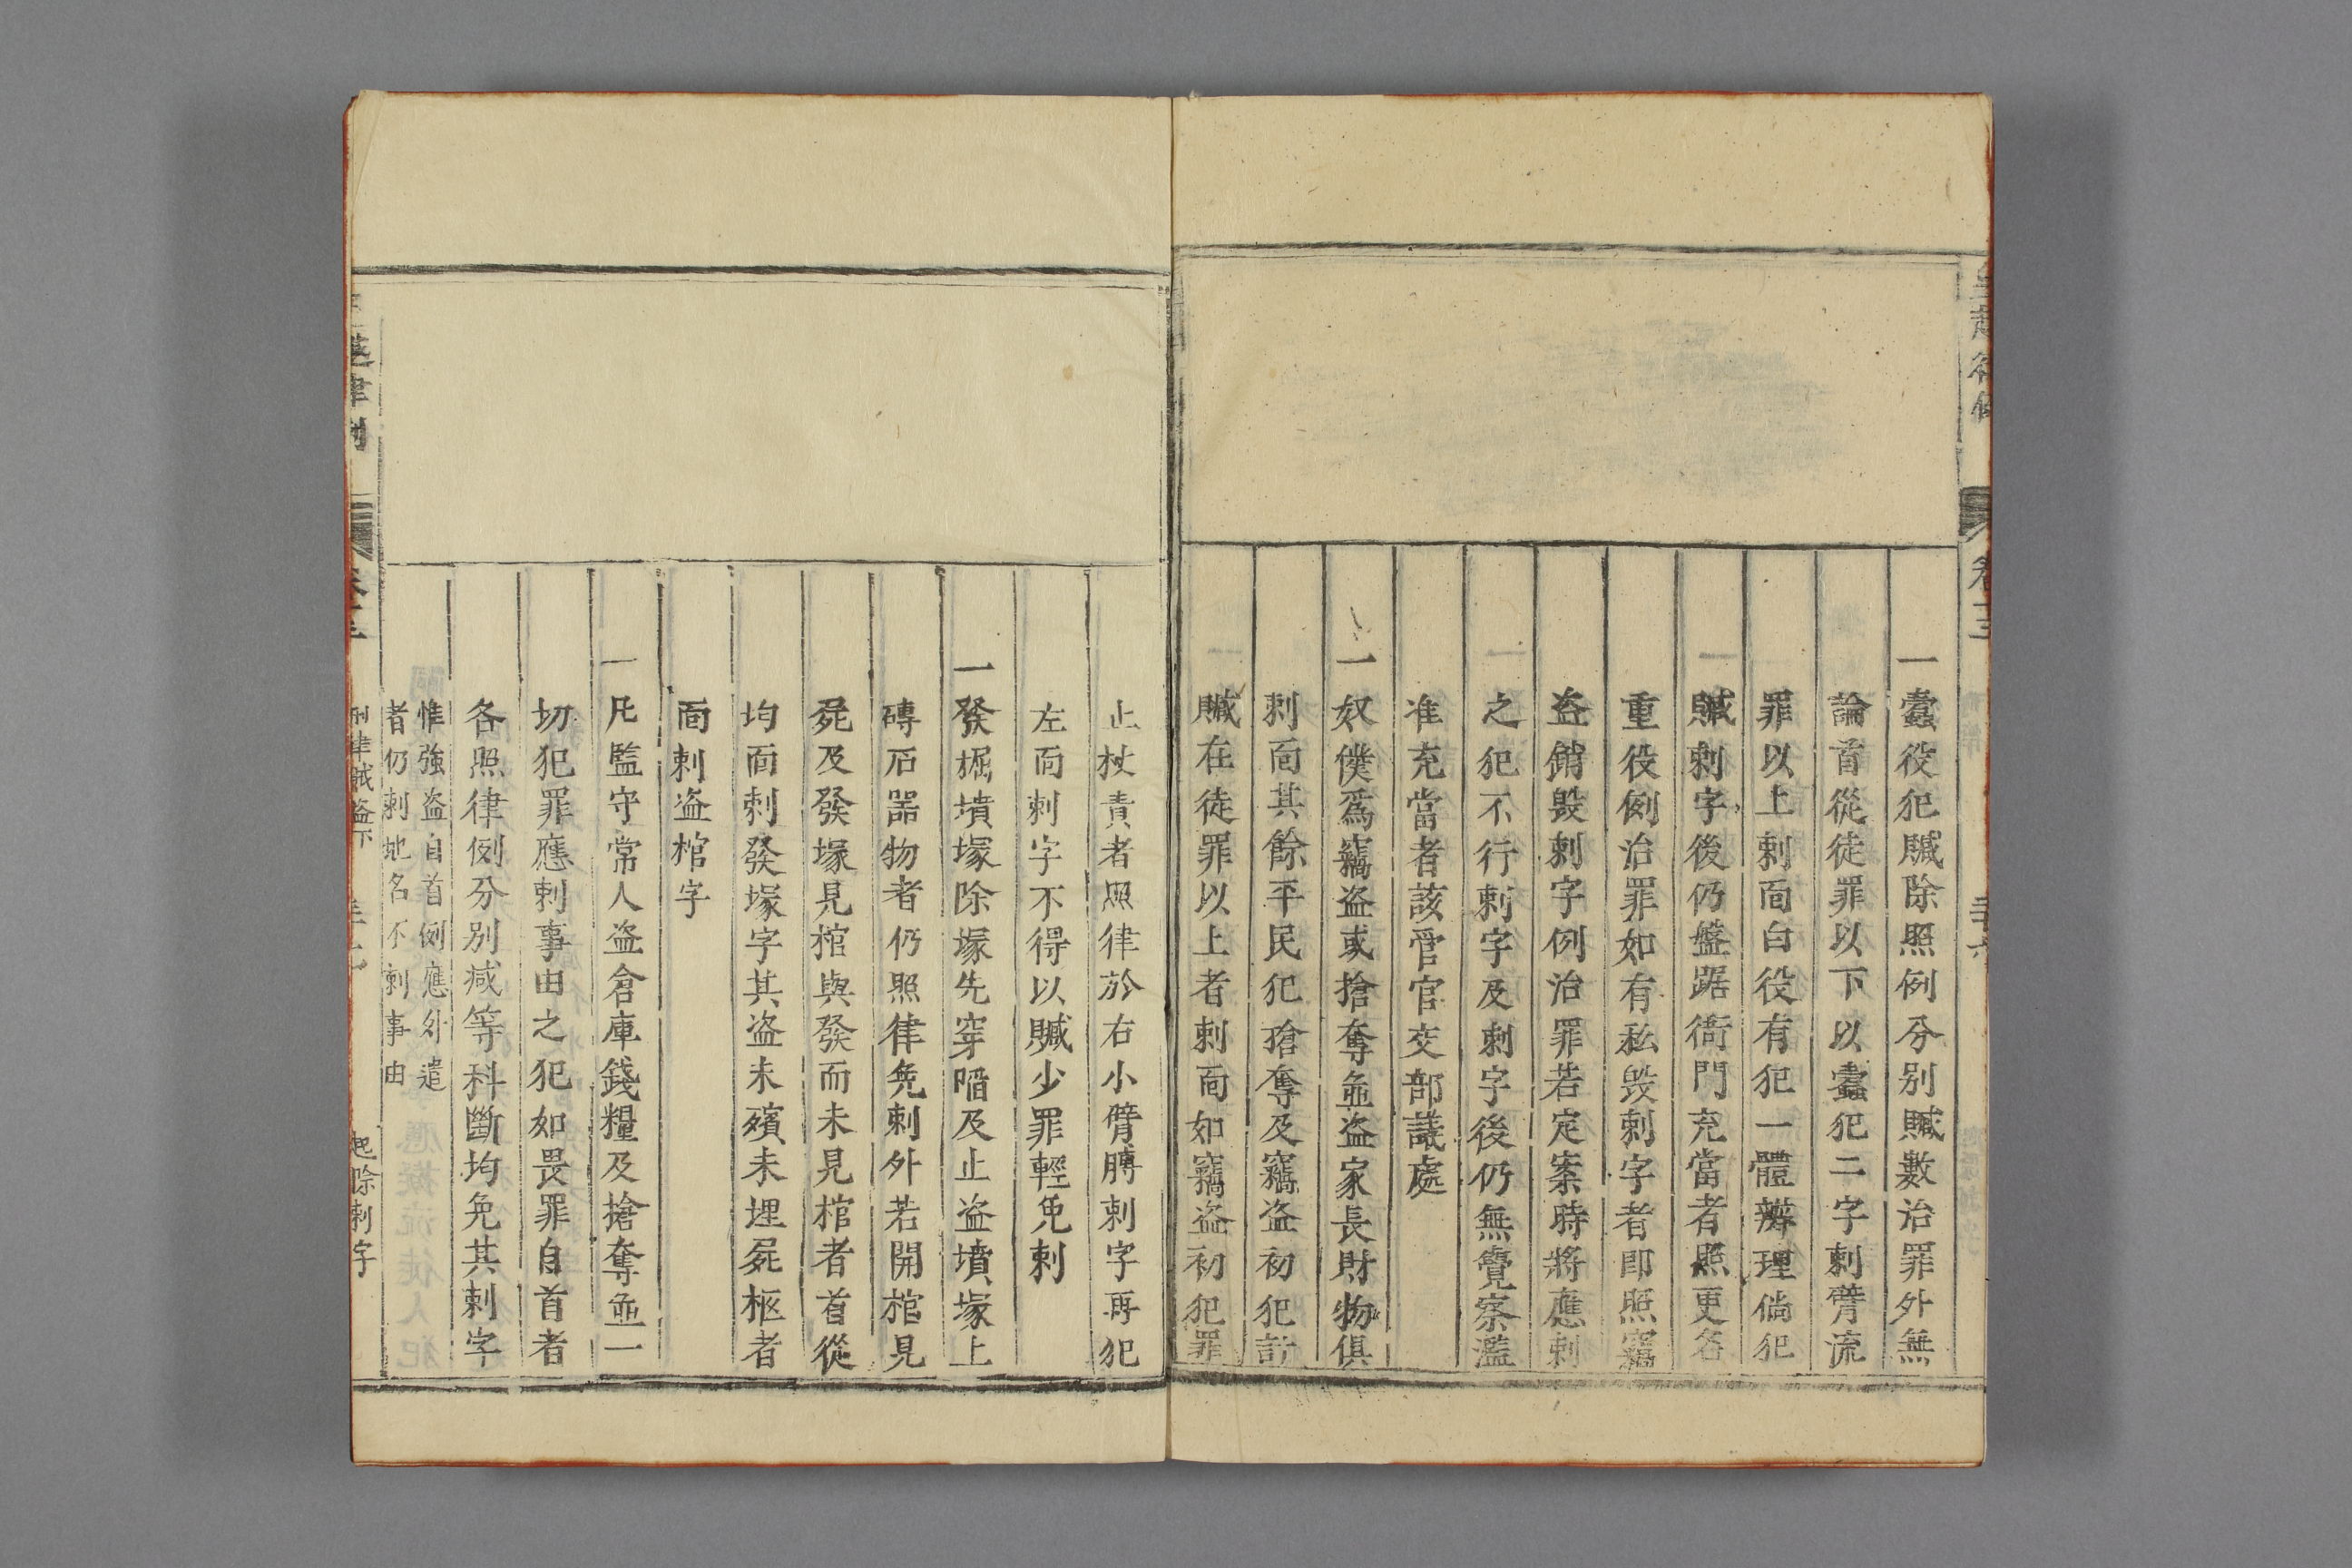 一蠹役犯贓除照例分别贓數治罪外無
論首從徒罪以下以蠹犯二字刺臂流
罪以上刺面白役有犯一體辦理倘犯
贓刺字後仍盤踞衙門充當者照更名
重役例治罪如有私毁刺字者即照竊
盗銷毁刺字例治罪若定案時將應刺
之犯不行刺字及刺字後仍無覺察濫
准充當者該管官交部議處
一奴僕爲竊盗或搶奪並盗家長財物俱
刺面其餘平民犯搶奪及竊盗初犯計
贓在徒罪以上者刺面如竊盗初犯罪
止杖責者照律於右小臂膊刺字再犯
左面刺字不得以贓少罪輕免刺
一發掘墳塚除塚先穿陷及止盗墳塚上
磚石器物者仍照律免刺外若開棺見
屍及發塚見棺與發而未見棺者首從
均面刺發塚字其盗未殯未埋屍柩者
面刺盗棺字
一凡監守常人盗倉庫錢糧及搶奪並一
切犯罪應刺事由之犯如畏罪自首者
各照律例分别减等科斷均免其刺字
惟強盗自首例應外遣
者仍刺地名不刺事由
刑律賊盗下
起除刺字